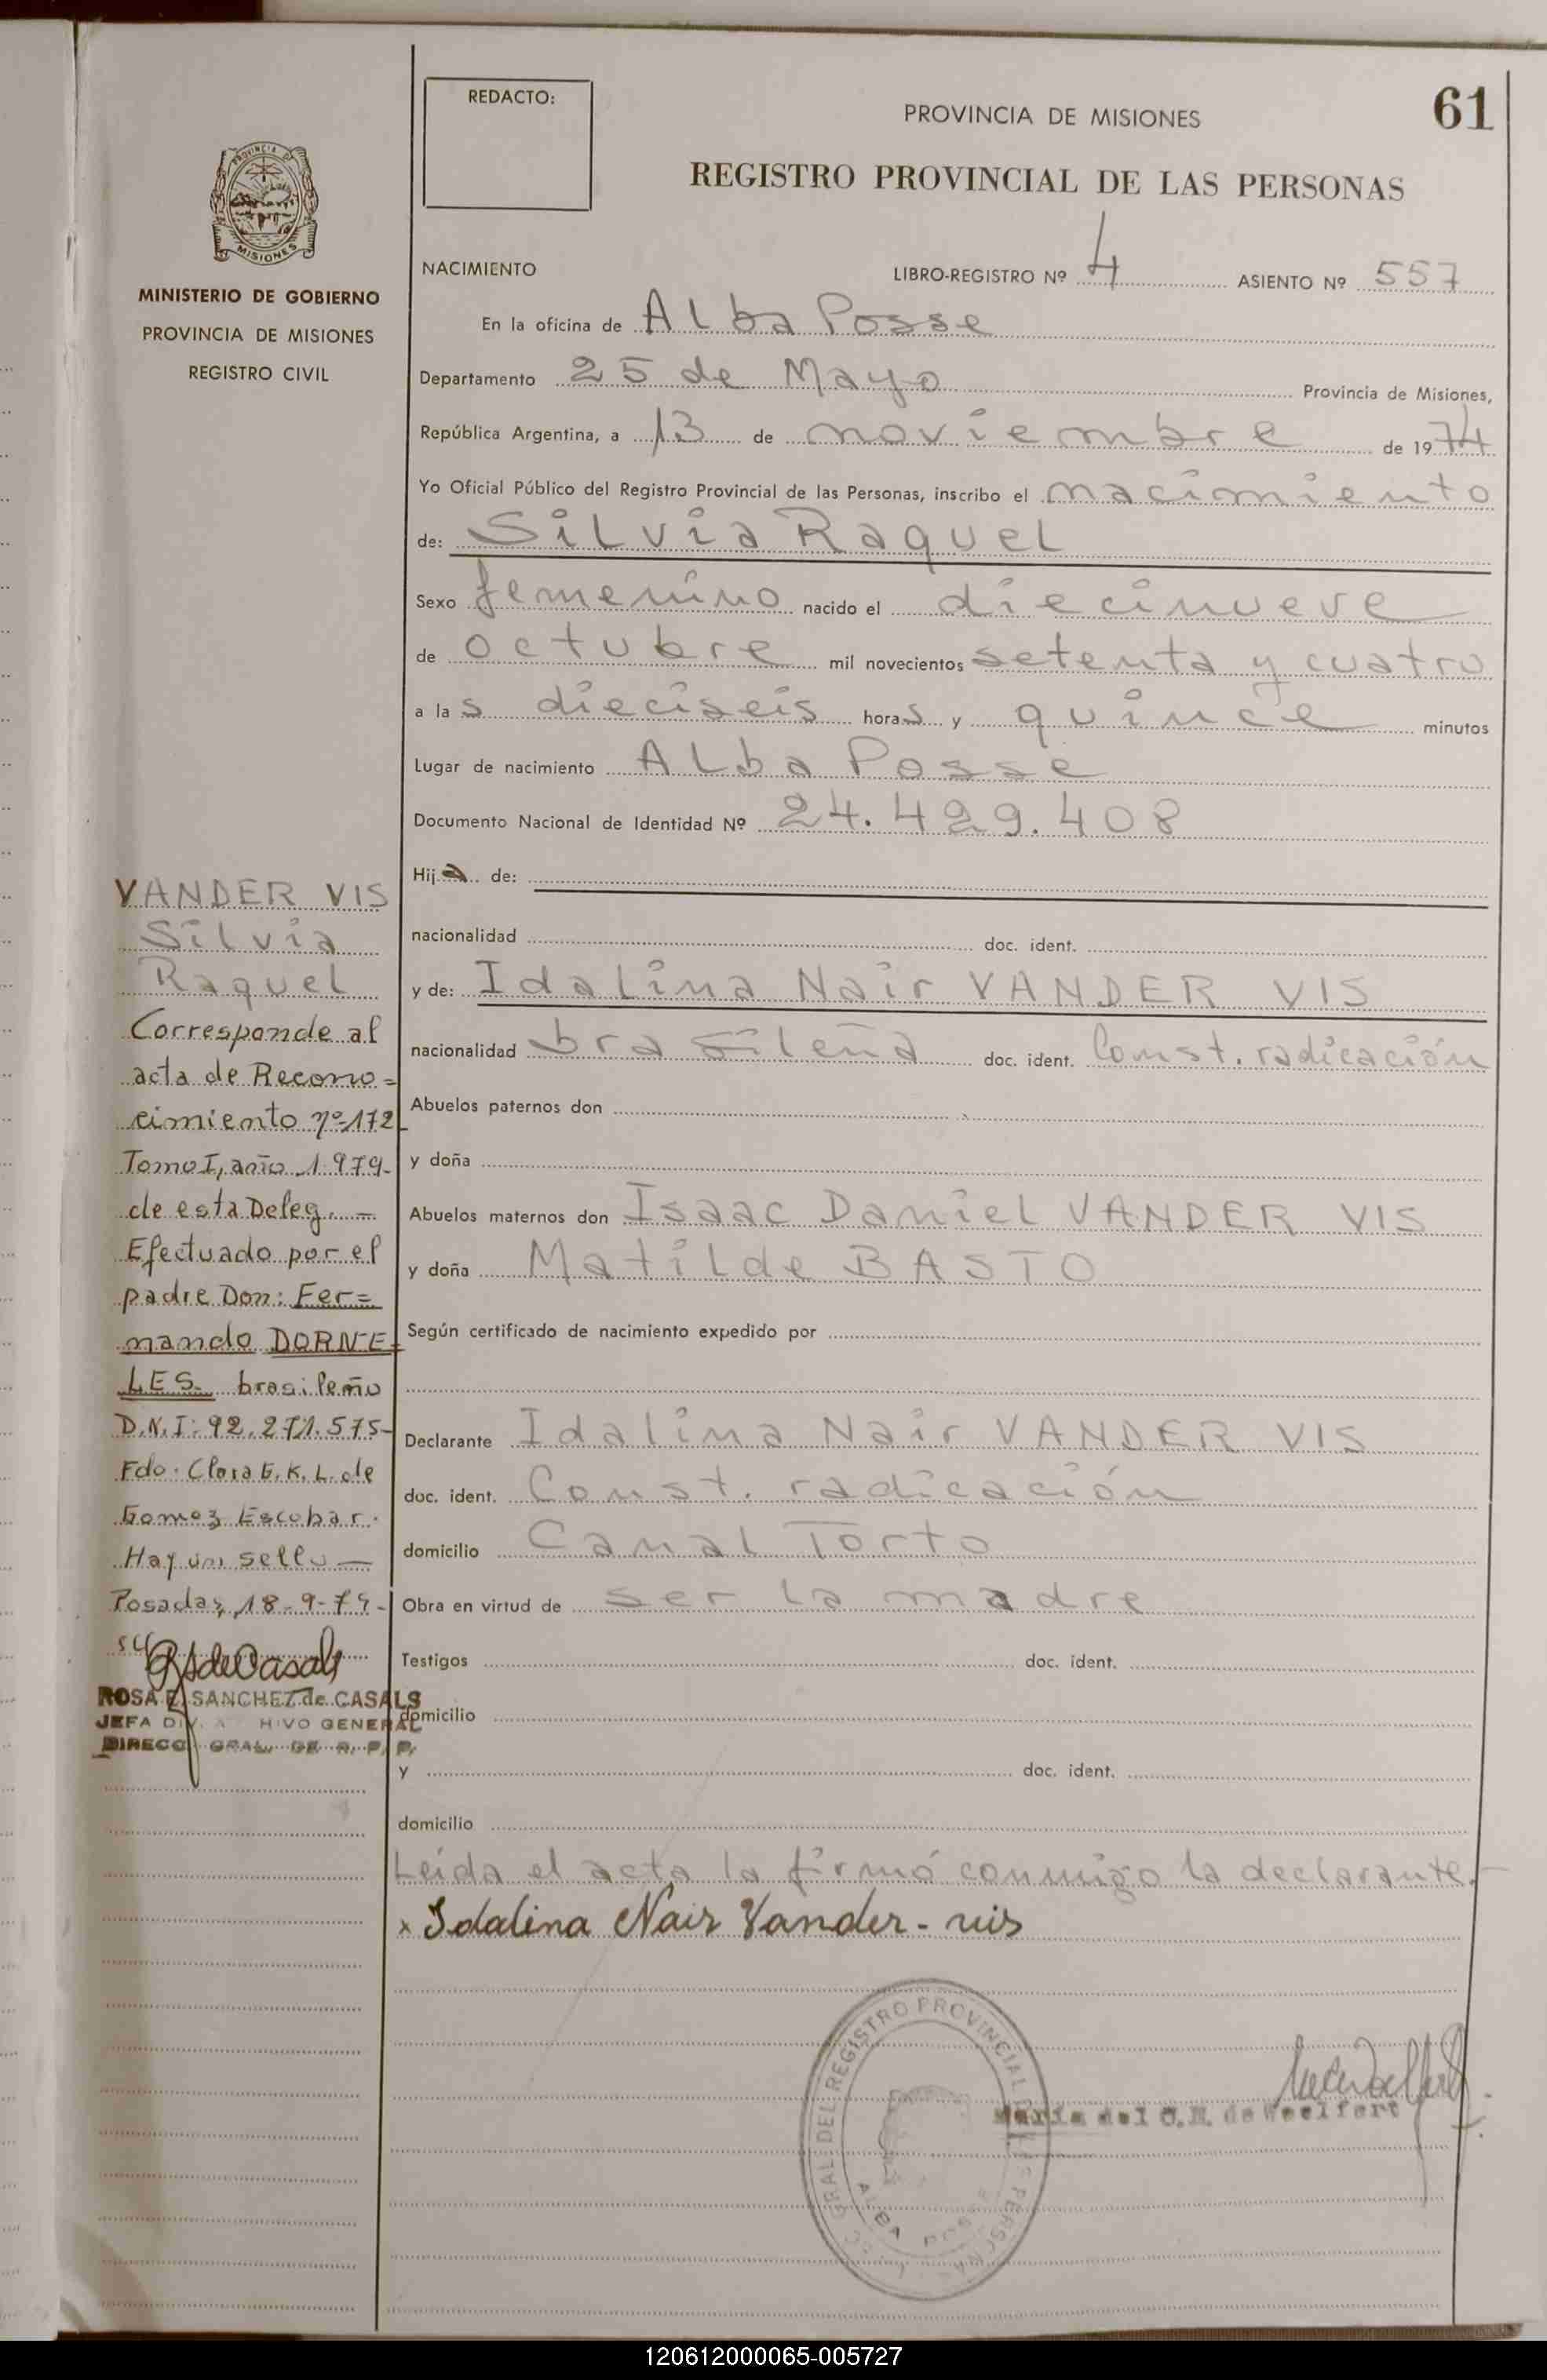 REDACTO:
PROVINCIA DE MISIONES
61
REGISTRO PROVINCIAL DE LAS PERSONAS
PROVINCIA DE
MISIONES
MINISTERIO DE GOBIERNO
PROVINCIA DE MISIONES
REGISTRO CIVIL
NACIMIENTO LIBRO-REGISTRO Nº 4 ASIENTO Nº 557
En la oficina de Alba Posse
Departamento 25 de Mayo Provincia de Misiones,
República Argentina, a 13 de noviembre de 1974
Yo Oficial Público del Registro Provincial de las Personas, inscribo el nacimiento
de: Silvia Raquel
Sexo femenino nacido el diecinueve
de octubre mil novecientos setenta y cuatro
a las dieciseis horas y quince minutos
Lugar de nacimiento Alba Posse
Documento Nacional de Identidad Nº 24.429.408
Hija de:
nacionalidad doc. ident.
y de: Idalina Nair VANDER VIS
nacionalidad brasileña doc. ident. Const. radicación
Abuelos paternos don
y doña
Abuelos maternos don Isaac Daniel VANDER VIS
y doña Matilde BASTO
Según certificado de nacimiento expedido por
Declarante Idalina Nair VANDER VIS
doc. ident. Const. radicación
domicilio Canal Torto
Obra en virtud de ser la madre
Testigos doc. ident.
domicilio
y doc. ident.
domicilio
Leída el acta la firmó conmigo la declarante.-
x Idalina Nair Vander-vis
VANDER VIS
Silvia
Raquel
Corresponde al
acta de Recono=
cimiento nº 172
Tomo I, año 1979-
de esta Deleg. —
Efectuado por el
padre Don: Fer=
nando DORNE=
LES. brasileño
D.N.I: 92.271.575-
Fdo. Clara E. K. L. de
Gomez Escobar.
Hay un sello —
Posadas, 18-9-79-
ROSA E. SANCHEZ de CASALS
JEFA DIV. HIVO GENERAL
DIRECC GRAL. DE R. P. P.
GRAL. DEL REGISTRO PROVINCIAL DE LAS PERSONAS
ALBA POSSE
María del C. M. de Woelfert
120612000065-005727